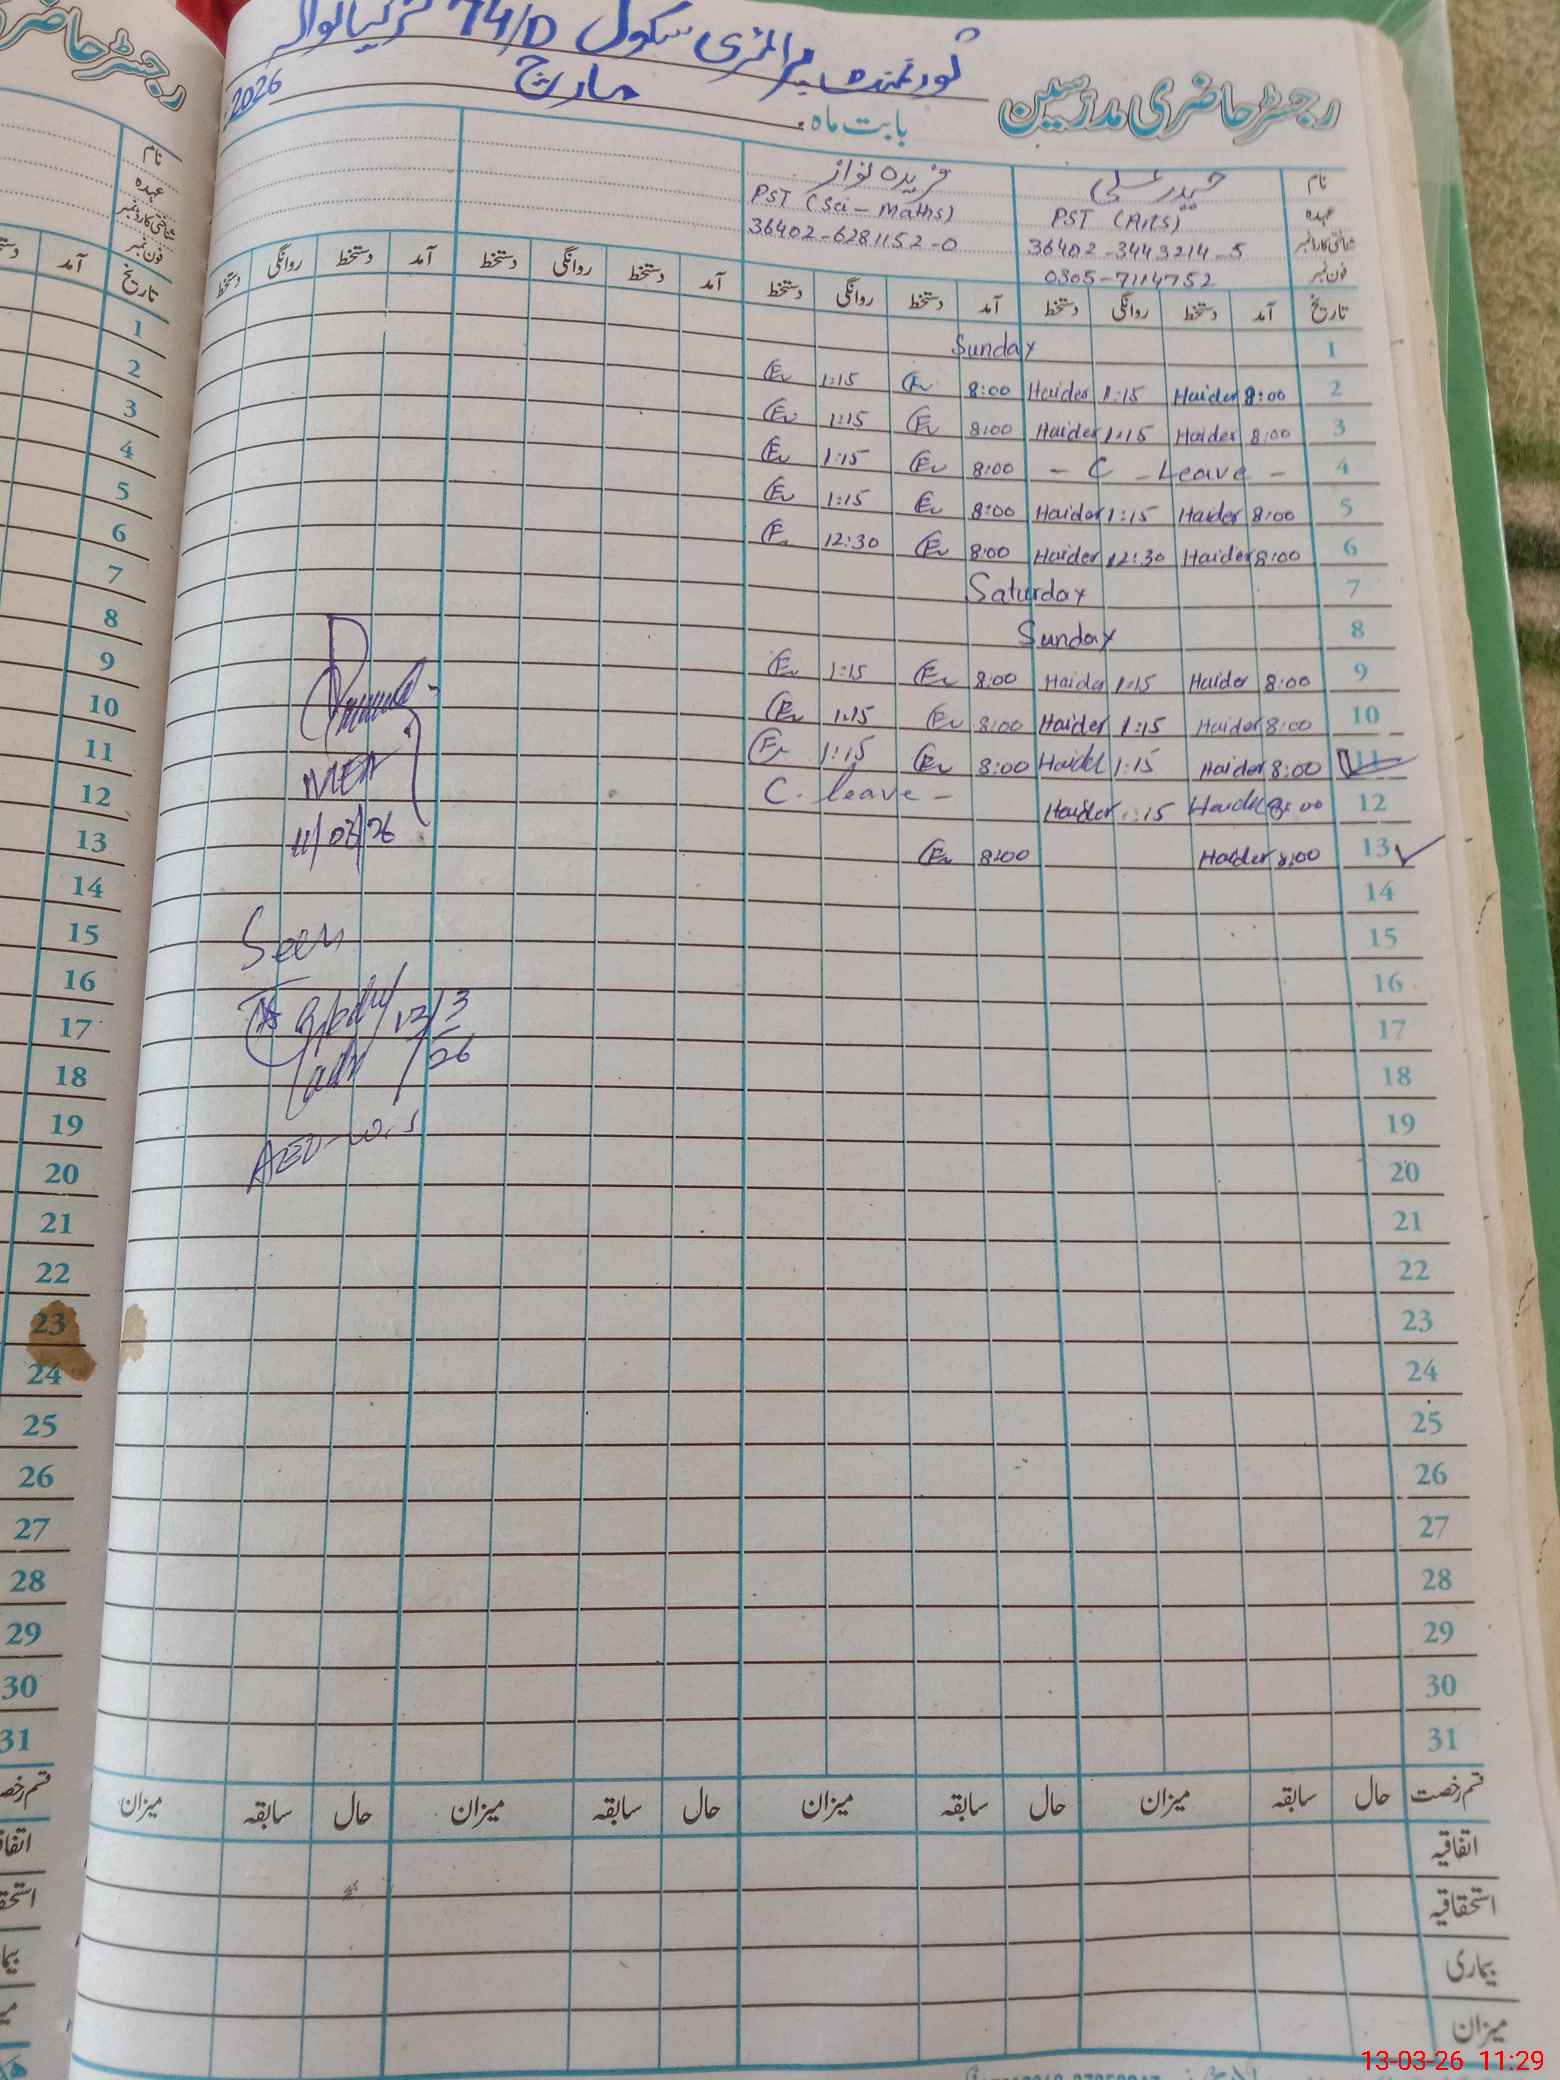 گورنمنٹ پرائمری سکول 74/D
رجسٹر حاضری مدرسین
بابت ماہ مارچ 2026
نام حیدر علی فریدہ نواز
عہدہ PST (Arts) PST (Sci - Maths)
شناختی کارڈ نمبر 36402-3443214-5 36402-6281152-0
فون نمبر 0305-7114752
تاریخ آمد دستخط روانگی دستخط آمد دستخط روانگی دستخط آمد دستخط روانگی دستخط آمد دستخط روانگی دستخط
1 Sunday
2 8:00 Haider 1:15 Haider 8:00 1:15
3 8:00 Haider 1:15 Haider 8:00 1:15
4 - C - Leave - 8:00 1:15
5 8:00 Haider 1:15 Haider 8:00 1:15
6 8:00 Haider 12:30 Haider 8:00 12:30
7 Saturday
8 Sunday
9 8:00 Haider 1:15 Haider 8:00 1:15
10 8:00 Haider 1:15 Haider 8:00 1:15
11 8:00 Haider 1:15 Haider 8:00 1:15
12 8:00 Haider 1:15 Haider C. leave -
13 8:00 Haider 8:00
14
15
16
17
18
19
20
21
22
23
24
25
26
27
28
29
30
31
MEA
11/03/26
Seen
13/3
26
AEO
قسم رخصت حال سابقہ میزان حال سابقہ میزان حال سابقہ میزان حال سابقہ میزان
اتفاقیہ
استحقاقیہ
بیماری
میزان
رجسٹر حاضری
نام
عہدہ
شناختی کارڈ نمبر
فون نمبر
تاریخ آمد
1
2
3
4
5
6
7
8
9
10
11
12
13
14
15
16
17
18
19
20
21
22
23
24
25
26
27
28
29
30
31
13-03-26 11:29